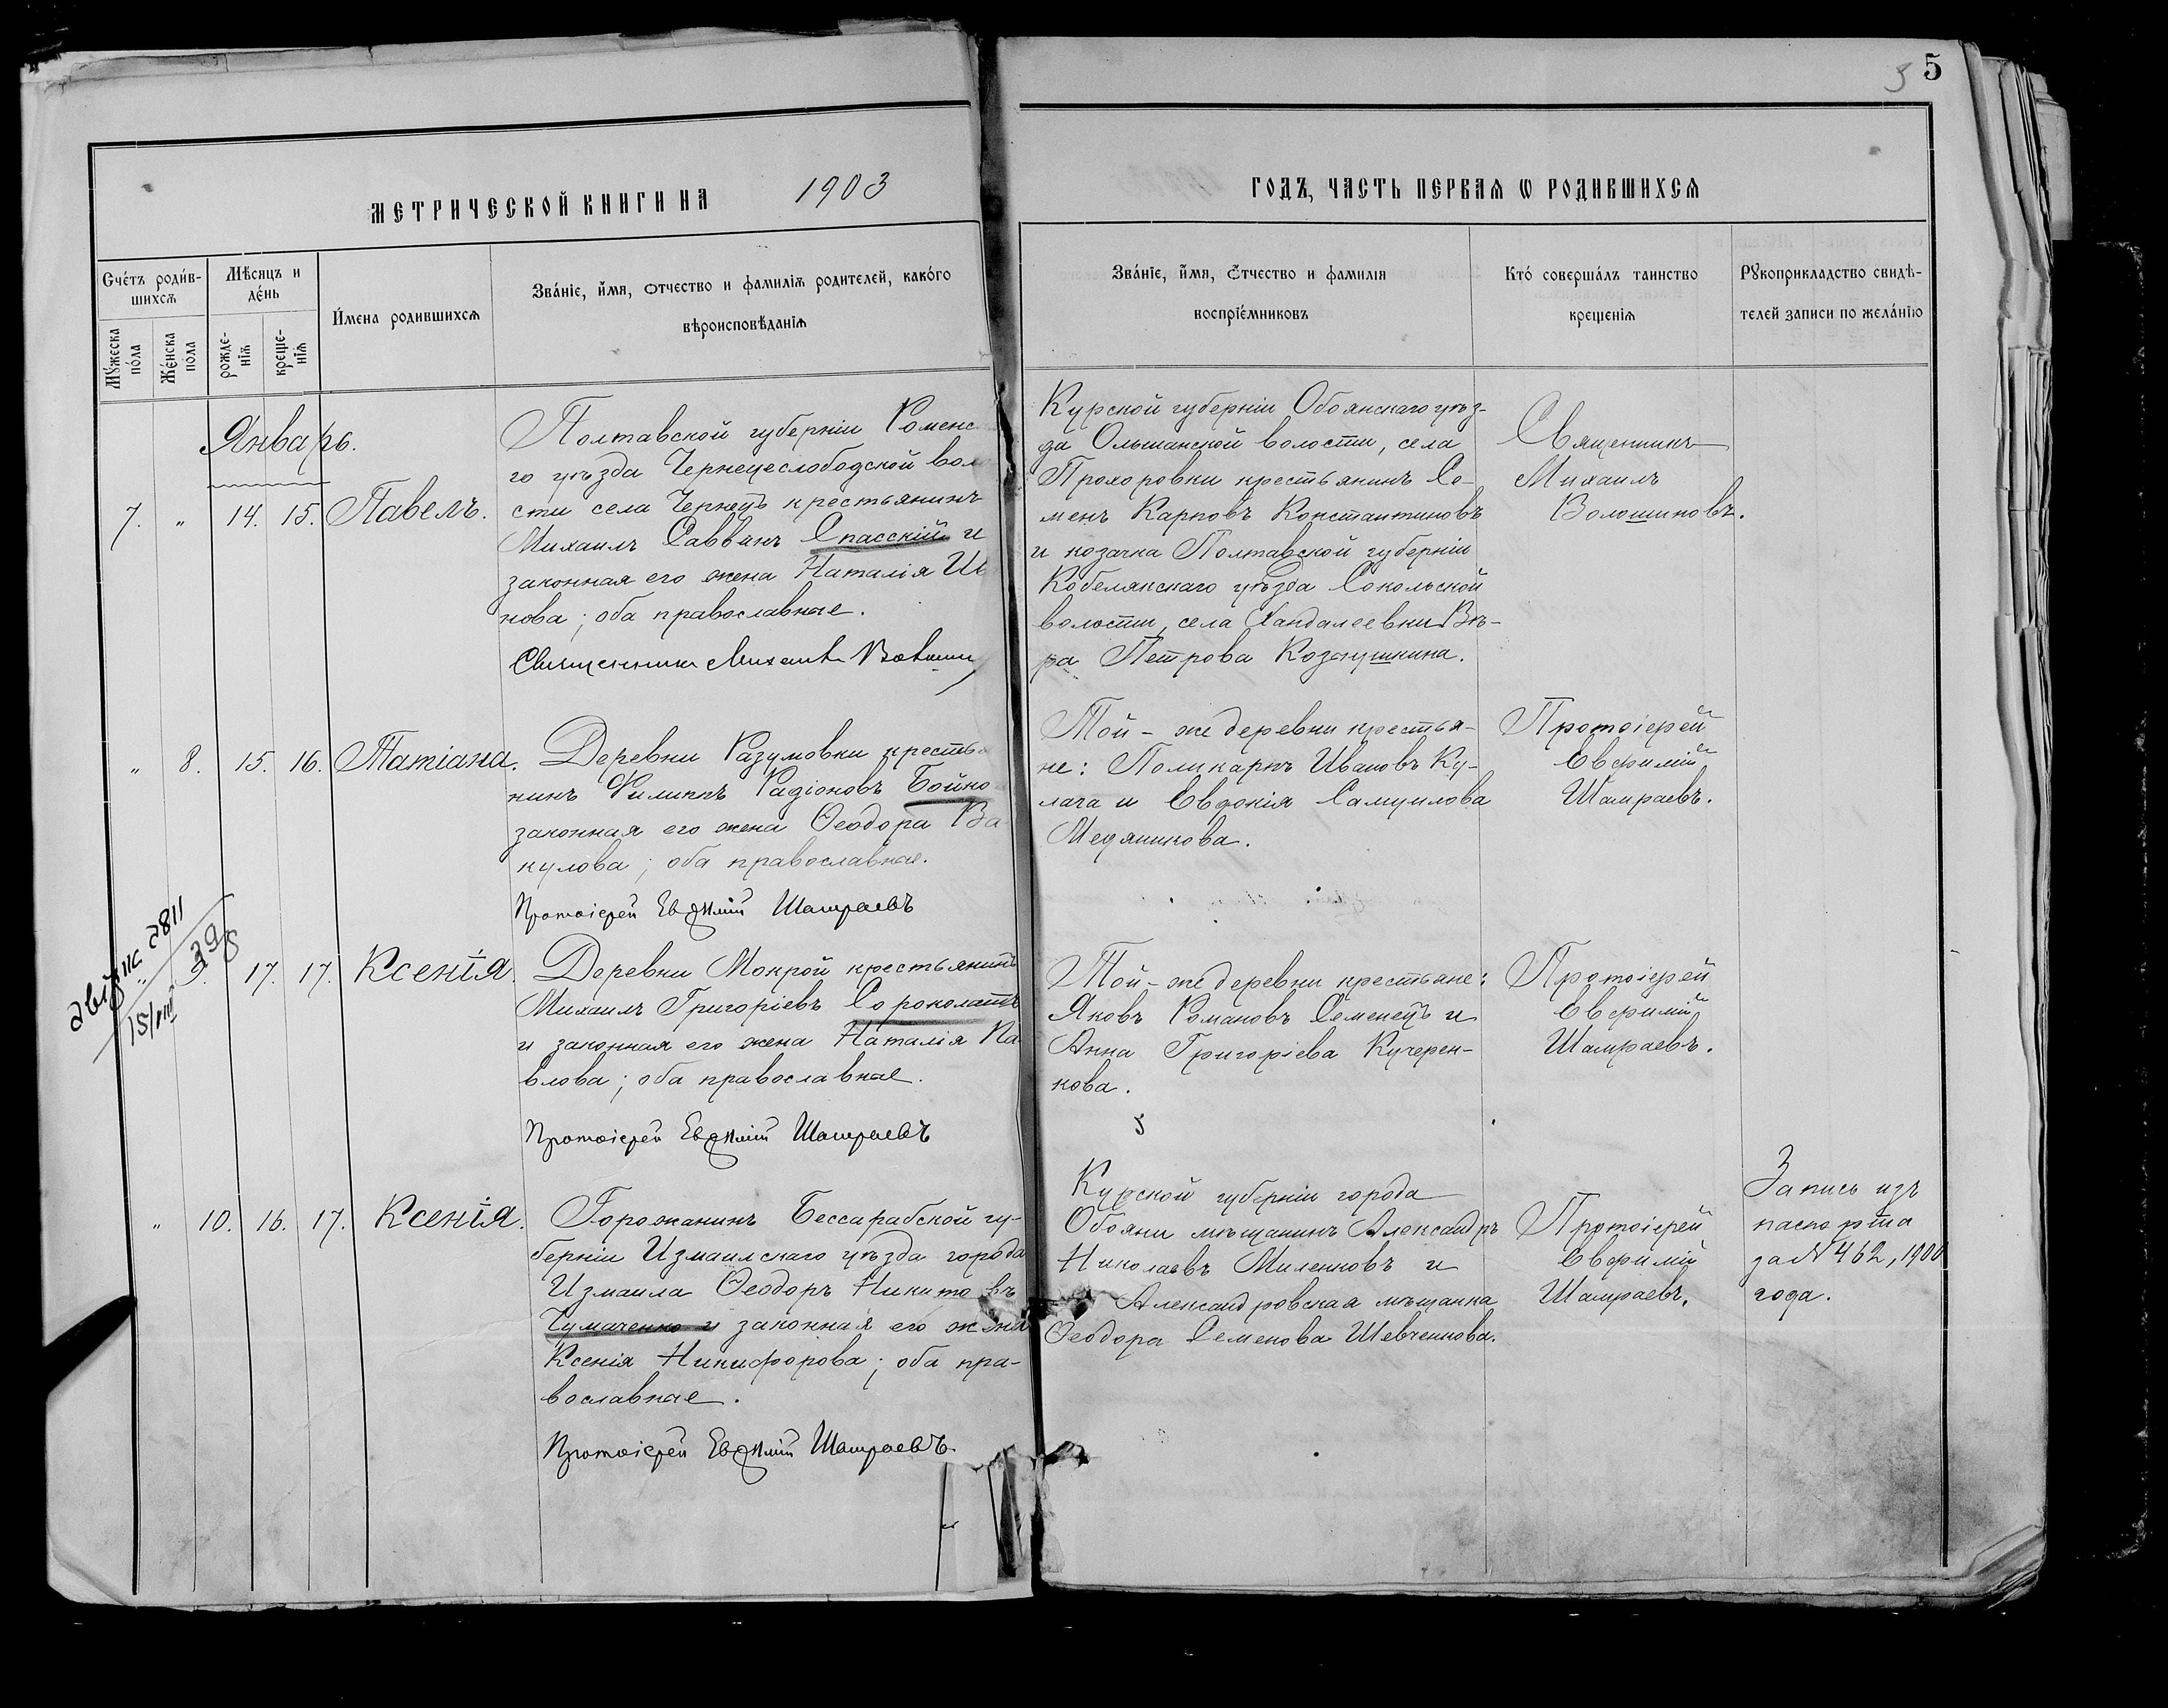 5
5
МЕТРИЧЕСКОЙ КНИГИ НА 1903
ГОДЪ, ЧАСТЬ ПЕРВАѦ Ѡ РОДИВШИХСѦ
Счéтъ роди́в-
шихсѧ
Мꙋ́жеска
по́ла
Же́нска
пола
Мѣ́сяцъ и
де́нь
рожде-
нїѧ
креще-
нїѧ
И҆́мена родившихсѧ
Зва́нїе, и҆́мя, ѻтчество и фамилїѧ родителей, како́го
вѣроисповѣ́данїѧ
Зва́нїе, и҆́мя, ѻ҆́тчество и фамилїя
воспрїе́мниковъ
Кто́ соверша́лъ таинство
крещенїѧ
Рꙋкоприкладство свидѣ-
телей записи по жела́нїю
Январь.
7. " 14. 15. Павелъ.
Полтавской губерніи Роменс
го уѣзда Чернецеслободской воло
сти села Чернецъ крестьянинъ
Михаилъ Саввинъ Спасскій и
законная его жена Наталія Ив
нова; оба православные.
Священникъ Михаилъ Волошин
Курской губерніи Обоянскаго уѣз-
да Ольшанской волости, села
Прохоровки крестьянинъ Се-
менъ Карповъ Константиновъ
и козачка Полтавской губерніи
Кобелякскаго уѣзда Сокольской
волости, села Хандалеевки Вѣ-
ра Петрова Козлушкина.
Священникъ
Михаилъ
Волошиновъ.
" 8. 15. 16. Татіана.
Деревни Разумовки кресть
нинъ Филиппъ Радіоновъ Бойко
законная его жена Ѳеодора Ва
кулова; оба православные.
Протоіерей Евѳимій Шамраевъ
Той-же деревни крестья-
не: Поликарпъ Ивановъ Ку-
лага и Евдокія Самуилова
Медяникова.
Протоіерей
Евфимій
Шамраевъ.
15/VIII 39
" 9. 17. 17. Ксенія.
Деревни Мокрой крестьянинъ
Михаилъ Григоріевъ Сороколатъ
и законная его жена Наталія Па
влова; оба православные.
Протоіерей Евѳимій Шамраевъ
Той-же деревни крестьяне:
Яковъ Романовъ Семенецъ и
Анна Григоріева Кучерен-
кова.
Протоіерей
Евфимій
Шамраевъ.
" 10. 16. 17. Ксенія.
Горожанинъ Бессарабской гу-
берніи Измаилскаго уѣзда города
Измаила Ѳеодоръ Никитовъ
Чумаченко и законная его жена
Ксенія Никифорова; оба пра-
вославные.
Протоіерей Евѳимій Шамраевъ
Курской губерніи города
Обояни мѣщанинъ Александръ
Николаевъ Миленковъ и
Александровская мѣщанка
Ѳеодора Семенова Шевченкова.
Протоіерей
Евфимій
Шамраевъ.
Запись изъ
паспорта
за № 462, 1900
года.